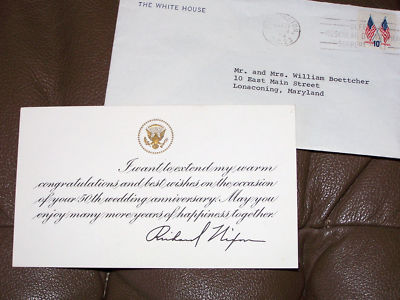 THE WHITE HOUSE
10
Mr. and Mrs. William Boettcher
10 East Main Street
Lonaconing, Maryland
I want to extend my warm
congratulations and best wishes on the occasion
of your 50th wedding anniversary. May you
enjoy many more years of happiness together.
Richard Nixon